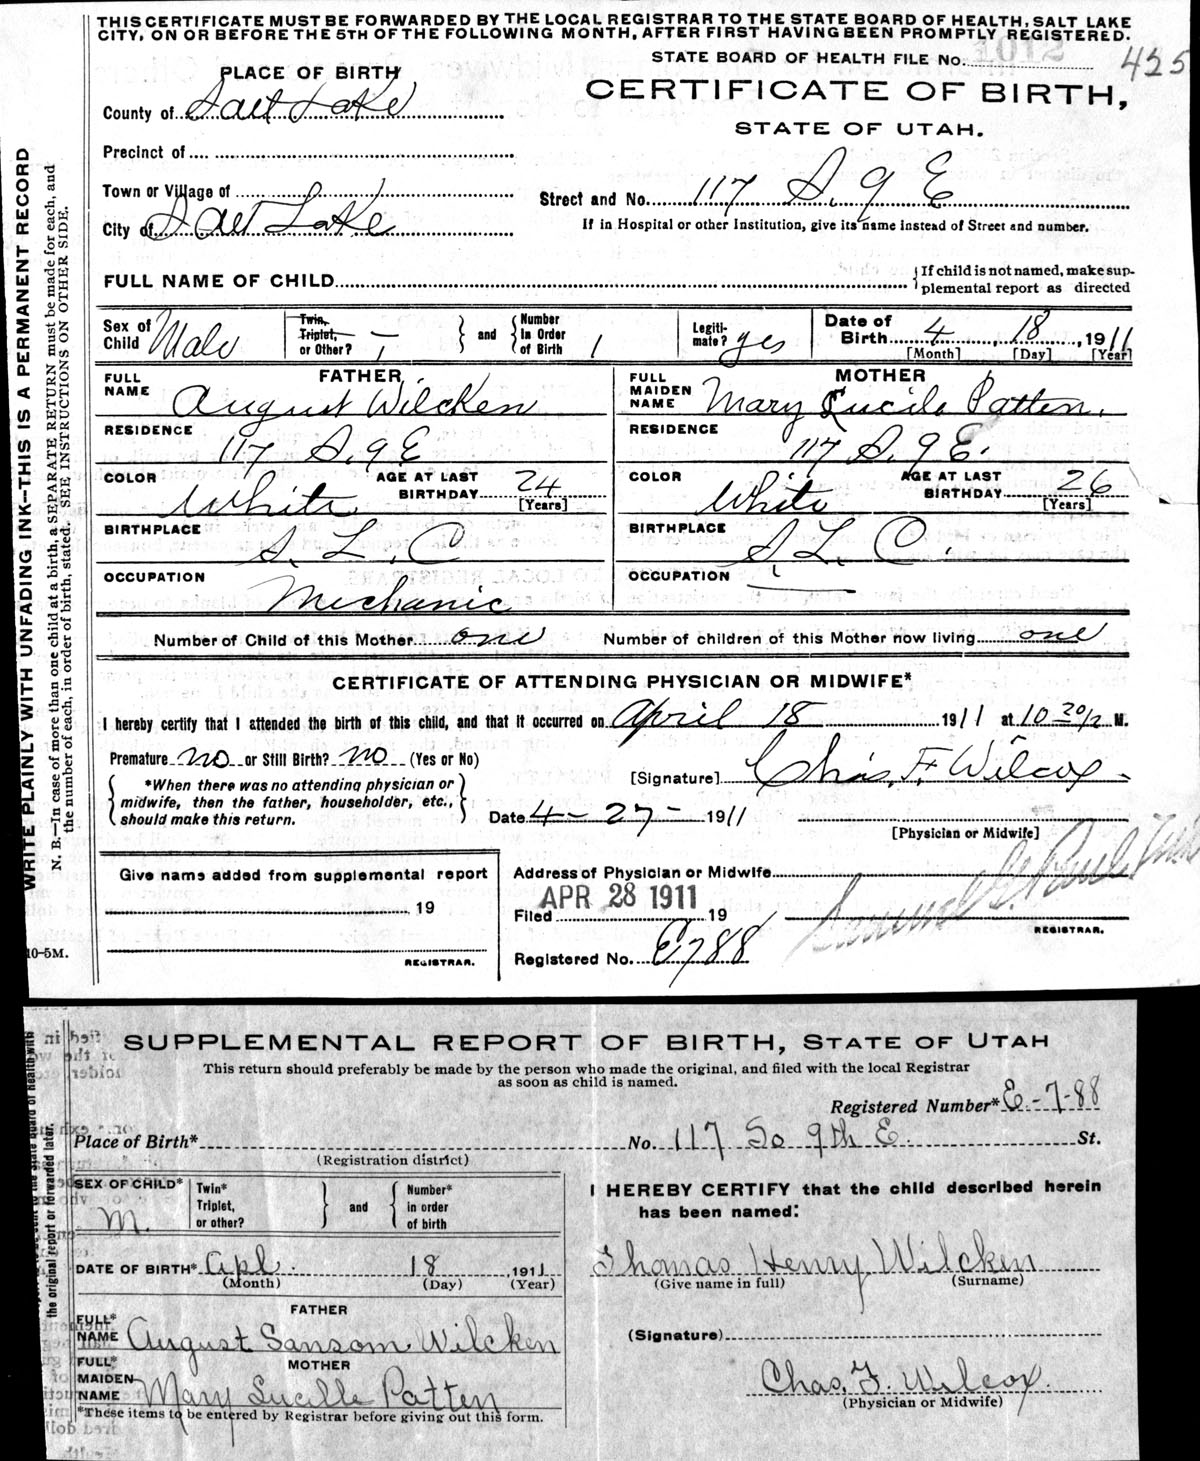 THIS CERTIFICATE MUST BE FORWARDED BY THE LOCAL REGISTRAR TO THE STATE BOARD OF HEALTH, SALT LAKE
CITY, ON OR BEFORE THE 5TH OF THE FOLLOWING MONTH, AFTER FIRST HAVING BEEN PROMPTLY REGISTERED.
STATE BOARD OF HEALTH FILE No. 425
PLACE OF BIRTH
CERTIFICATE OF BIRTH,
County of Salt Lake
STATE OF UTAH.
Precinct of
Town or Village of
Street and No. 117 S. 9 E
City of Salt Lake
If in Hospital or other Institution, give its name instead of Street and number.
FULL NAME OF CHILD
{If child is not named, make sup-
plemental report as directed
Sex of Child Male
Twin, Triplet, or Other? - and Number In Order of Birth 1
Legiti-mate? yes
Date of Birth 4 18, 1911
[Month] [Day] [Year]
FATHER
FULL NAME August Wilcken
MOTHER
FULL MAIDEN NAME Mary Lucile Patten.
RESIDENCE 117 S. 9 E
RESIDENCE 117 S. 9 E.
COLOR White AGE AT LAST BIRTHDAY 24 [Years]
COLOR White AGE AT LAST BIRTHDAY 26 [Years]
BIRTHPLACE S. L. C
BIRTHPLACE S. L. C.
OCCUPATION Mechanic
OCCUPATION
Number of Child of this Mother one Number of children of this Mother now living one
CERTIFICATE OF ATTENDING PHYSICIAN OR MIDWIFE*
I hereby certify that I attended the birth of this child, and that it occurred on April 18 1911 at 10 20/ M.
Premature no or Still Birth? no (Yes or No)
[Signature] Chas. F. Wilcox
*When there was no attending physician or
midwife, then the father, householder, etc.,
should make this return.
Date 4 - 27 - 1911
[Physician or Midwife]
Give name added from supplemental report
19
REGISTRAR.
Address of Physician or Midwife
Filed APR 28 1911 19
REGISTRAR.
Registered No. E788
WRITE PLAINLY WITH UNFADING INK--THIS IS A PERMANENT RECORD
N. B.—In case of more than one child at a birth, a SEPARATE RETURN must be made for each, and
the number of each, in order of birth, stated. SEE INSTRUCTIONS ON OTHER SIDE.
10-5M.
SUPPLEMENTAL REPORT OF BIRTH, STATE OF UTAH
This return should preferably be made by the person who made the original, and filed with the local Registrar
as soon as child is named.
Registered Number* E-7-88
Place of Birth* No. 117 So 9th E. St.
(Registration district)
SEX OF CHILD* M.
Twin* Triplet, or other? and Number* in order of birth
I HEREBY CERTIFY that the child described herein
has been named:
DATE OF BIRTH* Apl. 18, 1911
(Month) (Day) (Year)
Thomas Henry Wilcken
(Give name in full) (Surname)
FATHER
FULL* NAME August Sansom Wilcken
(Signature)
MOTHER
FULL* MAIDEN NAME Mary Lucille Patten
Chas. F. Wilcox.
(Physician or Midwife)
*These items to be entered by Registrar before giving out this form.
the original report or forwarded later.